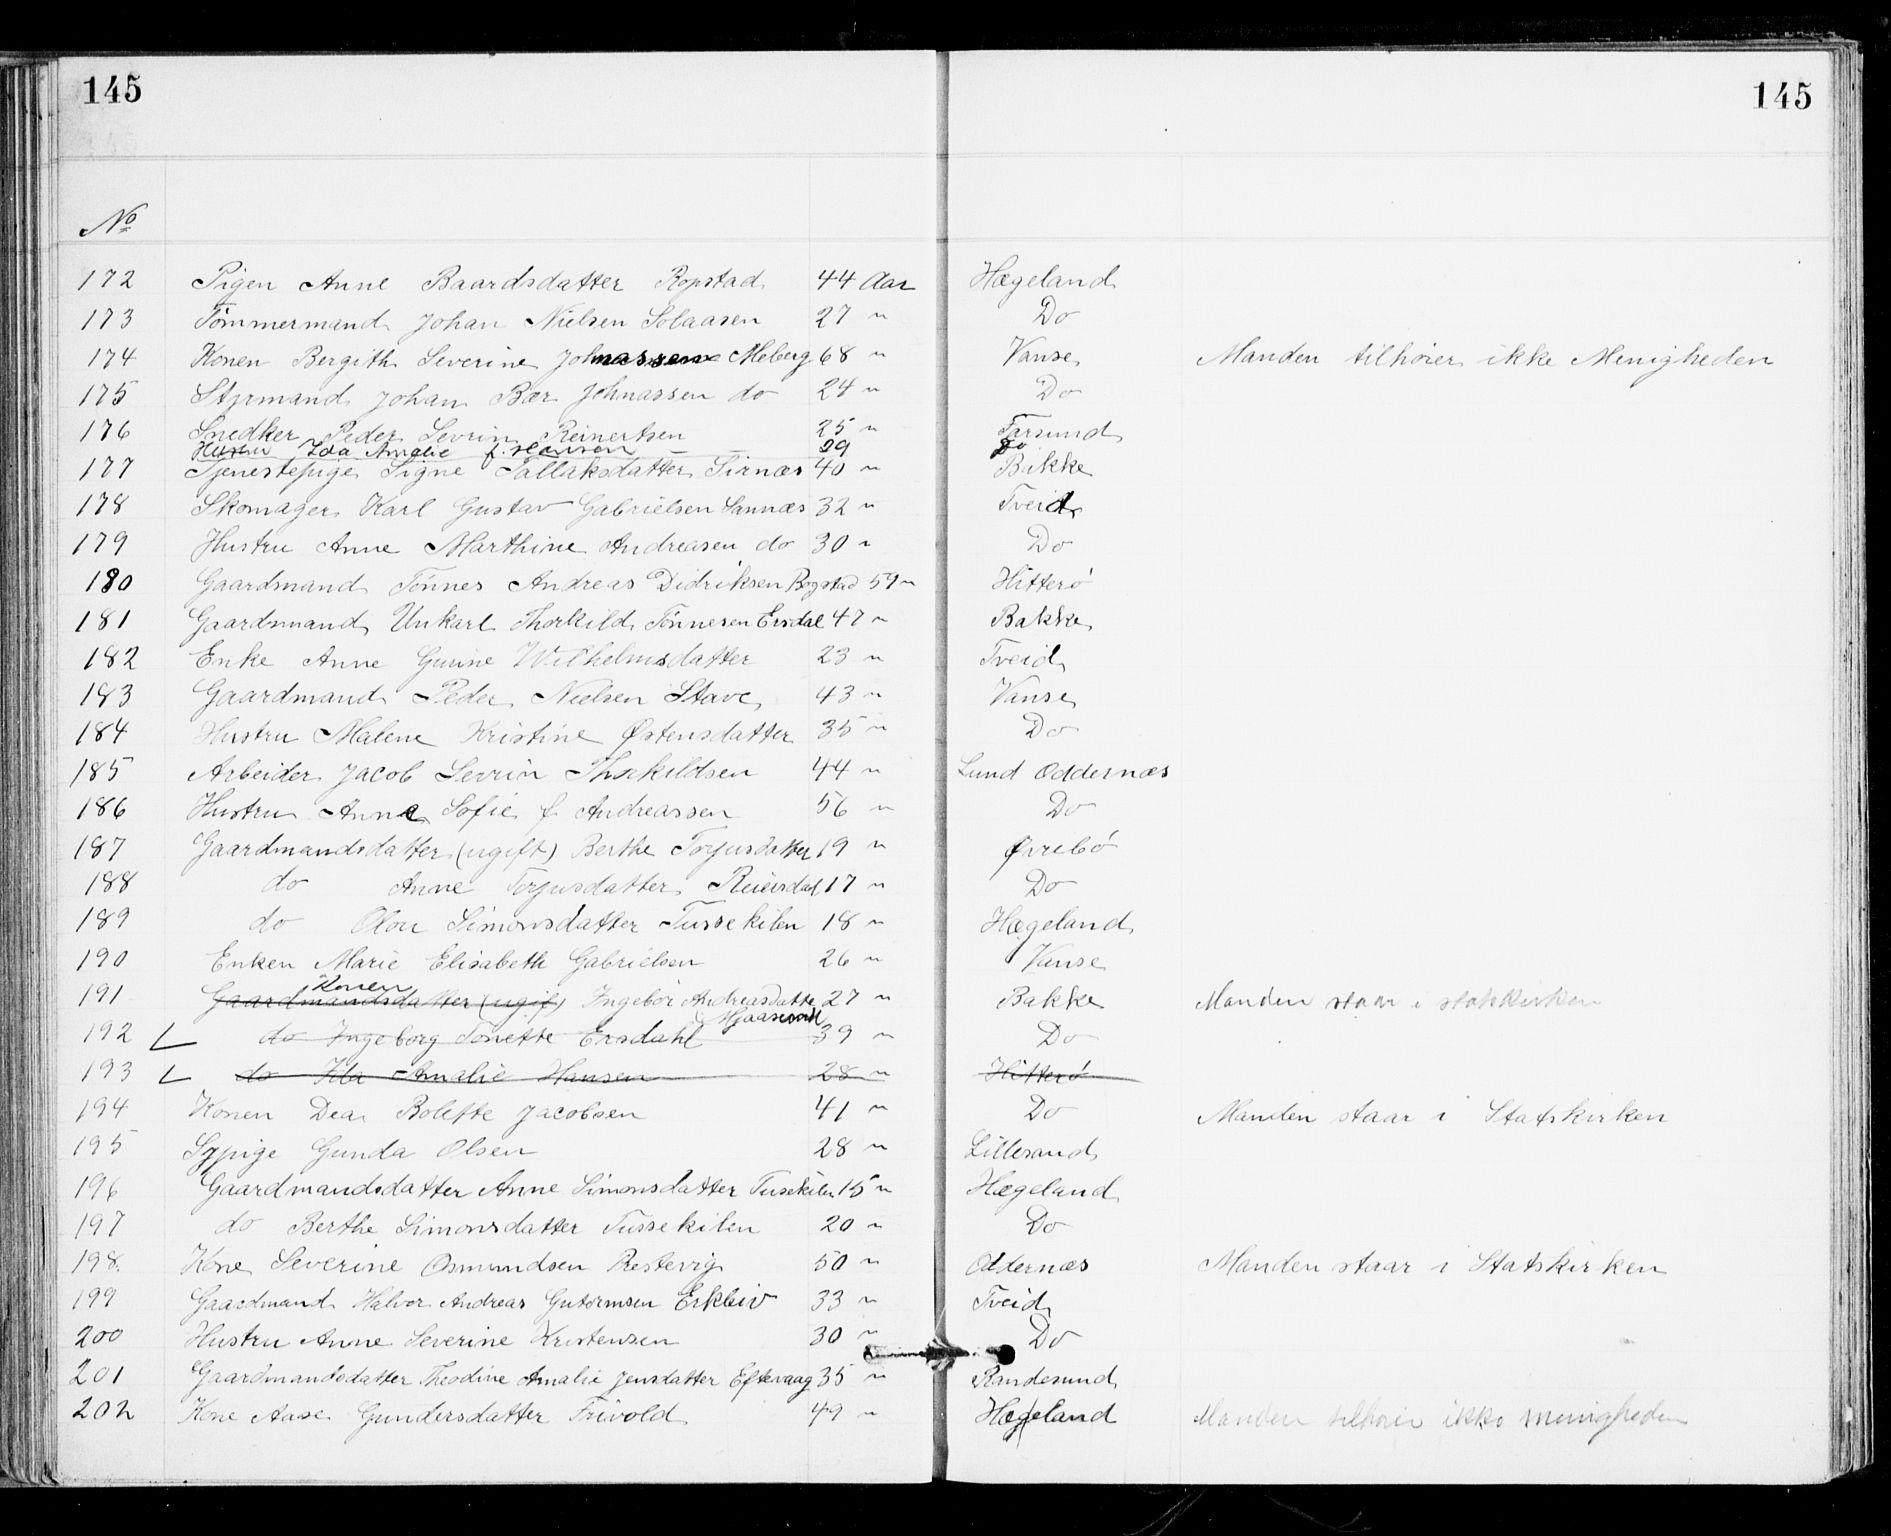 145 145
No
172 Pigen Anne Baardsdatter Ropstad 44 Aar Hægeland
173 Tömmermand Johan Nielsen Solaasen 27 " Do
174 Konen Bergith Severine Johnassen Meberg 68 " Vanse Manden tilhörer ikke Menigheden
175 Styrmand Johan Bær Johnassen do 24 " Do
176 Snedker Peder Sevrin Reinertsen 25 " Farsund
Hustru Ida Amalie f. Hansen — — 29 Do
177 Tjenestepige Signe Tallaksdatter Tirnæs 40 " Bakke
178 Skomager Karl Gustav Gabrielsen Sannæs 32 " Tveid
179 Hustru Anne Marthine Andreasen do 30 " Do
180 Gaardmand Tönnes Andreas Didriksen Rogstad 59 " Hitterö
181 Gaardmand Unkarl Thorkild Tönnesen Ersdal 47 " Bakke
182 Enke Anne Gurine Wilhelmsdatter 23 " Tveid
183 Gaardmand Peder Nielsen Stave 43 " Vanse
184 Hustru Malene Kristine Østensdatter 35 " Do
185 Arbeider Jacob Sevrin Thorkildsen 44 " Lund Oddernæs
186 Hustru Anne Sofie f. Andreassen 56 " Do
187 Gaardmandsdatter (ugift) Berthe Torjusdatter 19 " Øvrebö
188 do Anne Torjusdatter Reiersdal 17 " Do
189 do Olou Simonsdatter Tussekilen 18 " Hægeland
190 Enken Marie Elisabeth Gabrielsen 26 " Vanse
Konen
191 Gaardmandsdatter (ugift) Ingebör Andreasdatter 27 " Bakke Manden staar i statskirken
192 do Ingeborg Tonette Ersdahl 39 " Do
193 do Ida Amalie Hansen 28 " Hitterö
194 Konen Dea Bolette Jacobsen 41 " Do Manden staar i Statskirken
195 Sypige Gunda Olsen 28 " Lillesand
196 Gaardmandsdatter Anne Simonsdatter Tusekilen 15 " Hægeland
197 do Berthe Simonsdatter Tussekilen 20 " Do
198. Kone Severine Osmundsen Restevig 50 " Oddernæs Manden staar i Statskirken
199 Gaardmand Halvor Andreas Gutormsen Erkleiv 33 " Tveid
200 Hustru Anne Severine Kristensen 30 " Do
201 Gaardmandsdatter Theodine Amalie Jensdatter Eftevaag 35 " Randesund
202 Kone Aase Gundersdatter Trivold 49 " Hægeland Manden tilhörer ikke menigheden